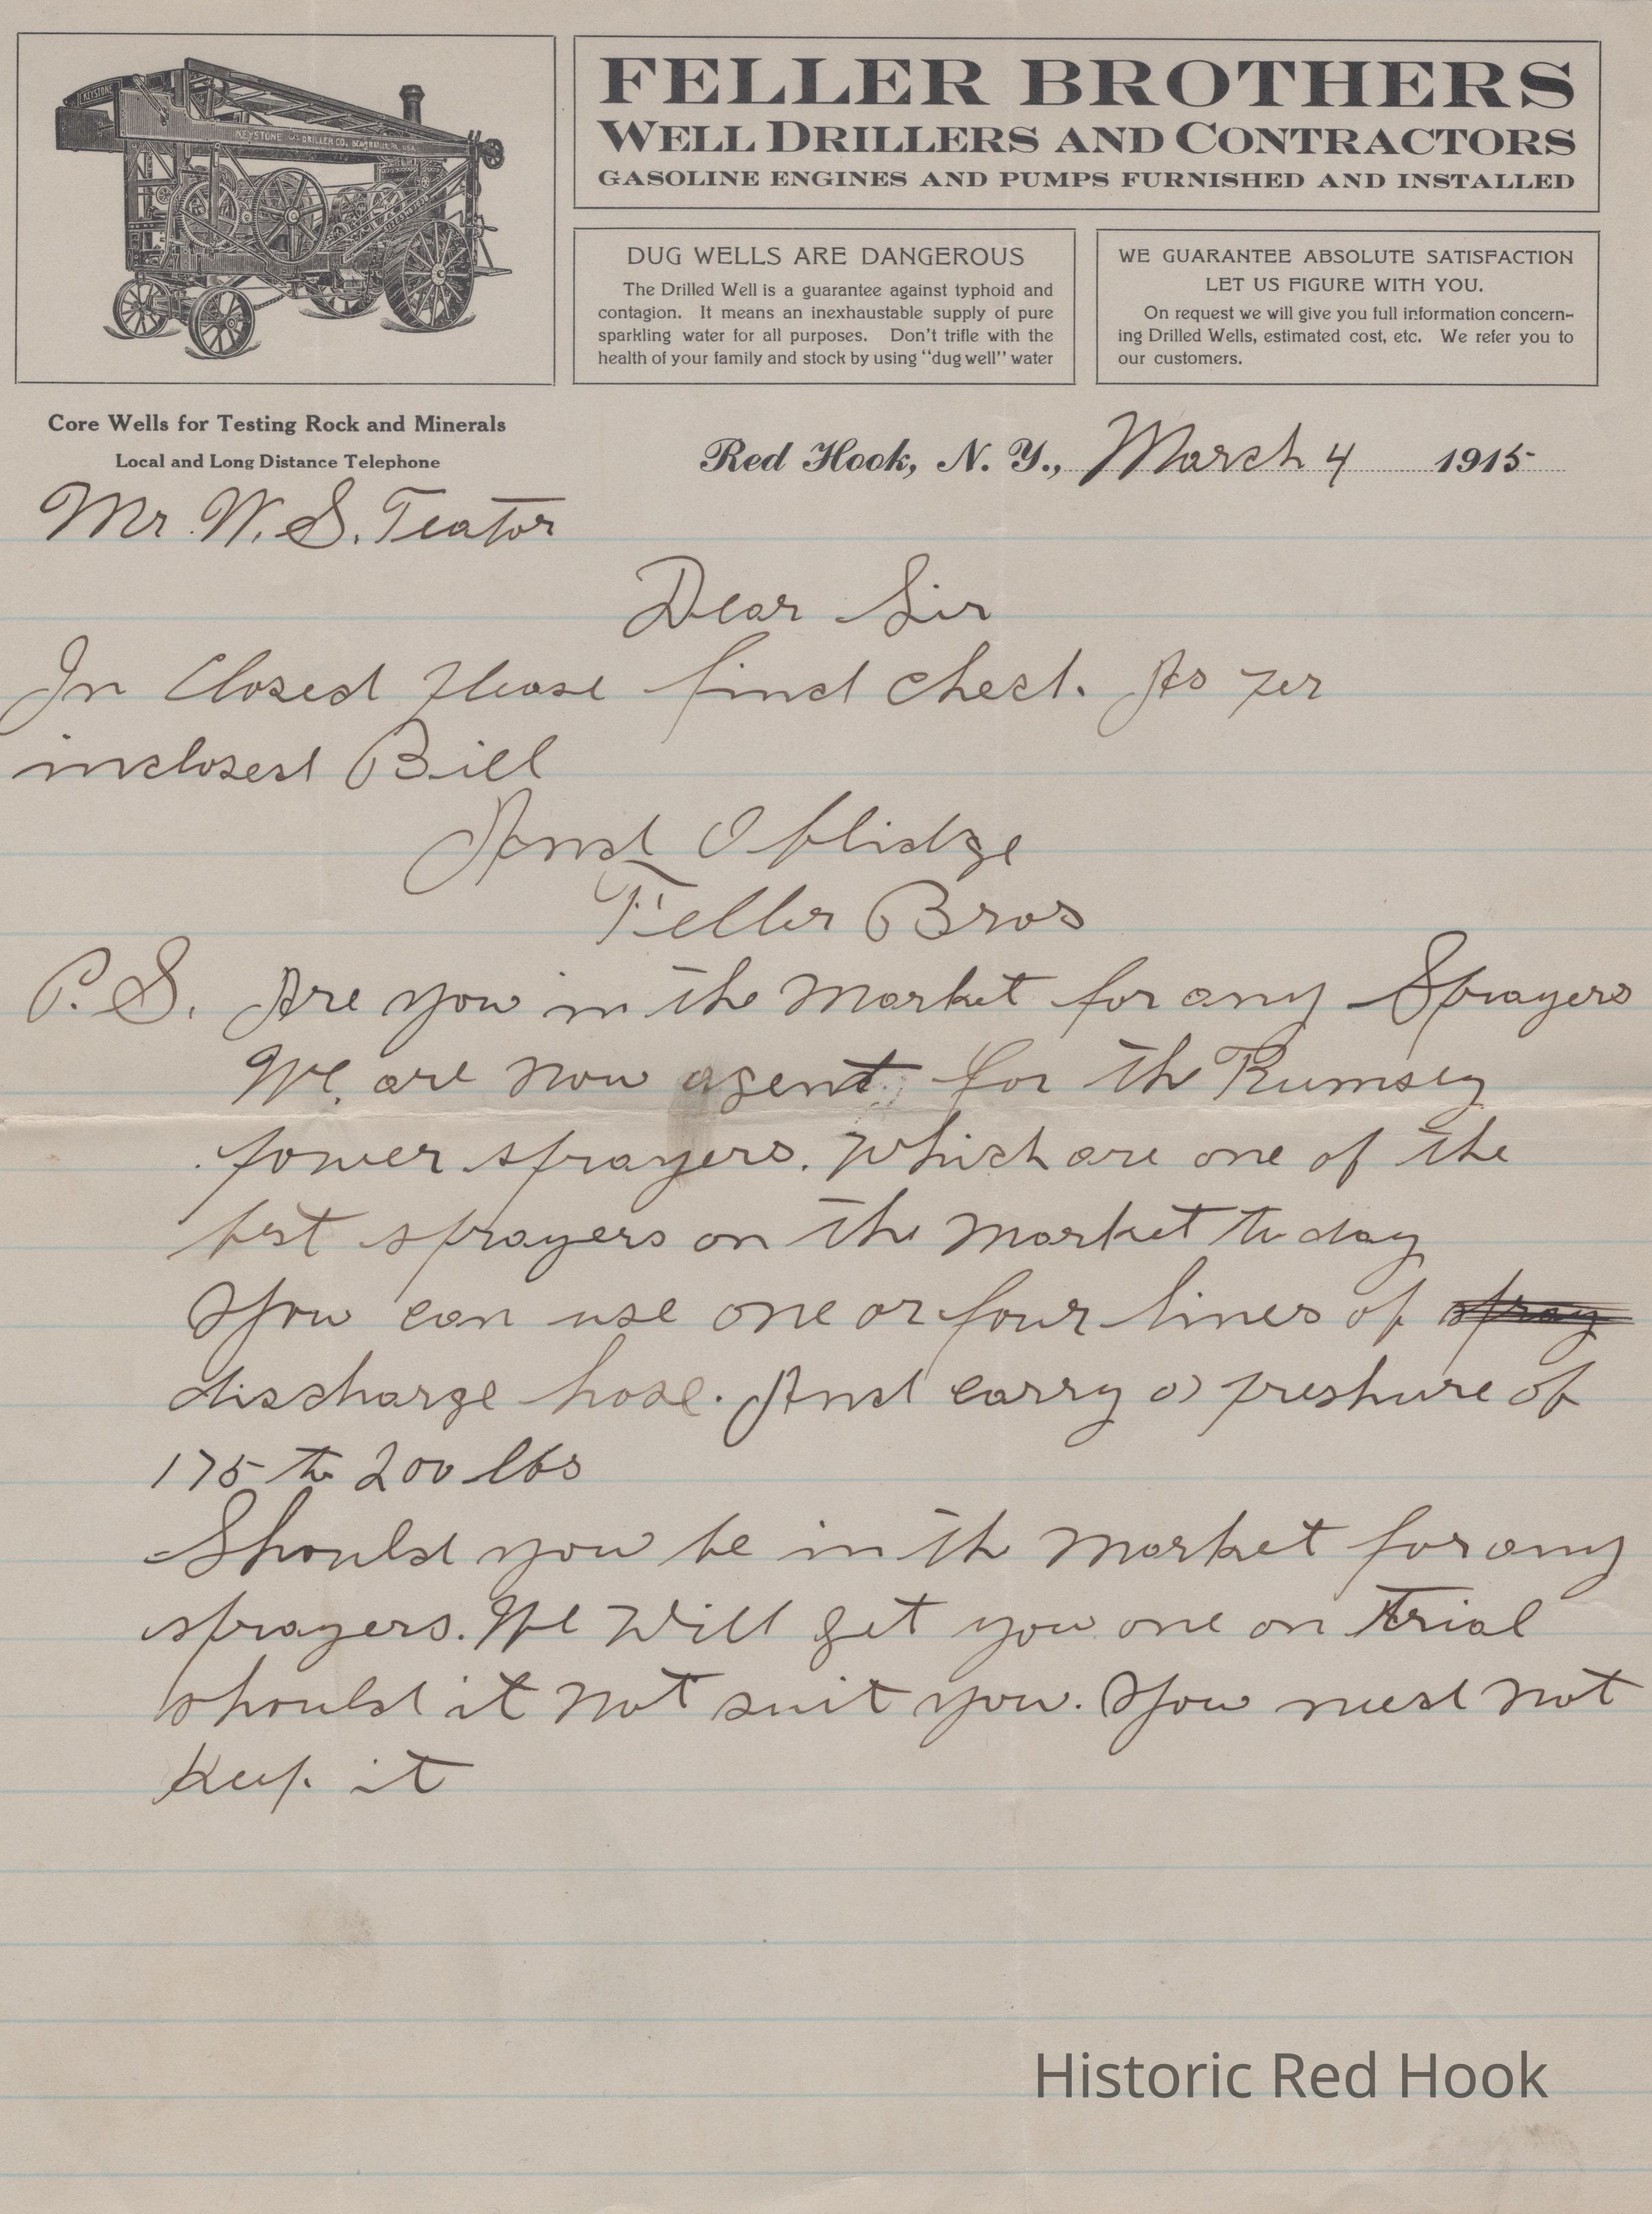 KEYSTONE
KEYSTONE DRILLER CO. BEAVER FALLS, PA. USA.
FELLER BROTHERS
WELL DRILLERS AND CONTRACTORS
GASOLINE ENGINES AND PUMPS FURNISHED AND INSTALLED
DUG WELLS ARE DANGEROUS
The Drilled Well is a guarantee against typhoid and
contagion. It means an inexhaustable supply of pure
sparkling water for all purposes. Don't trifle with the
health of your family and stock by using "dug well" water
WE GUARANTEE ABSOLUTE SATISFACTION
LET US FIGURE WITH YOU.
On request we will give you full information concern-
ing Drilled Wells, estimated cost, etc. We refer you to
our customers.
Core Wells for Testing Rock and Minerals
Local and Long Distance Telephone
Red Hook, N. Y., March 4 1915
Mr. W. S. Teator
Dear Sir
In Closed please find check. As per
inclosed Bill
And Oblidge
Feller Bros
P. S. Are you in the Market for any Sprayers
We are now agent for th Rumsey
power sprayers. Which are one of the
best sprayers on the Market to day
You can use one or four lines of spray
discharge hose. And carry a preshure of
175 to 200 lbs
Should you be in th Market for any
sprayers. We Will get you one on trial
should it not suit you. You need not
Keep it
Historic Red Hook